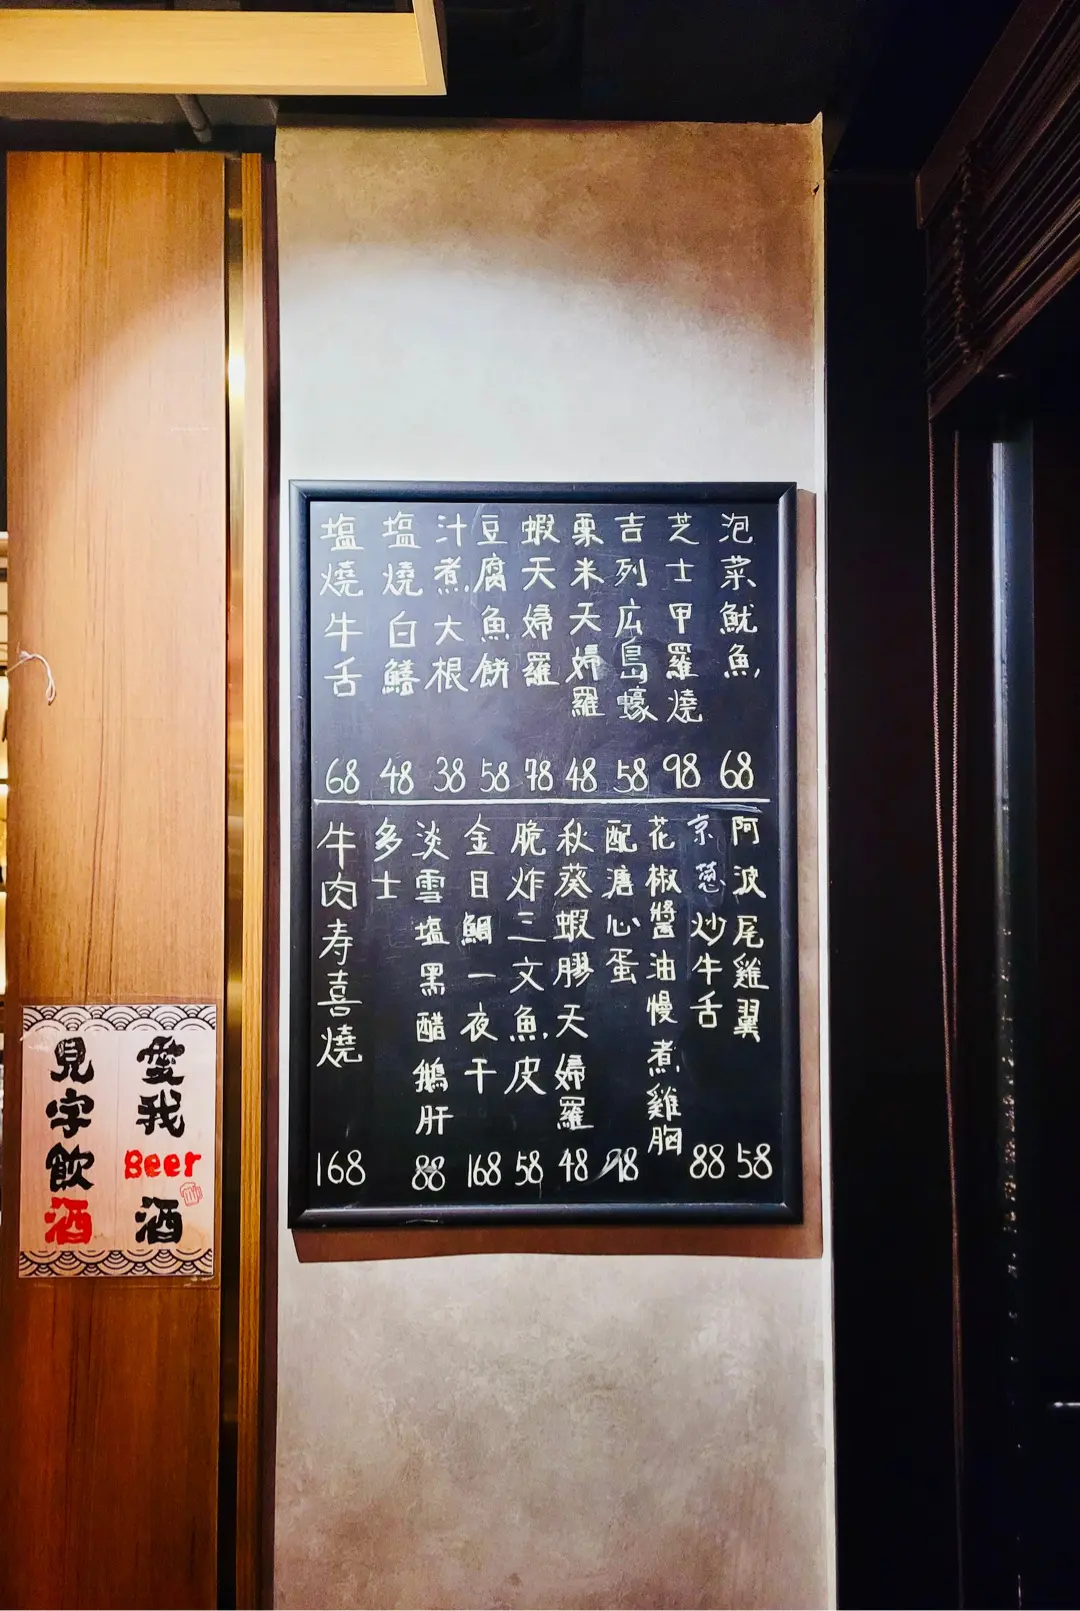 泡菜魷魚 68
芝士甲羅燒 98
吉列広島蠔 58
粟米天婦羅 48
蝦天婦羅 78
豆腐魚餅 58
汁煮大根 38
塩燒白鱔 48
塩燒牛舌 68
阿波尾雞翼 58
京葱炒牛舌 88
花椒醬油慢煮雞胸
配溏心蛋 98
秋葵蝦膠天婦羅 48
脆炸三文魚皮 58
金目鯛一夜干 168
淡雪塩黑醋鵝肝 88
多士
牛肉寿喜燒 168
愛我Beer酒
見字飲酒